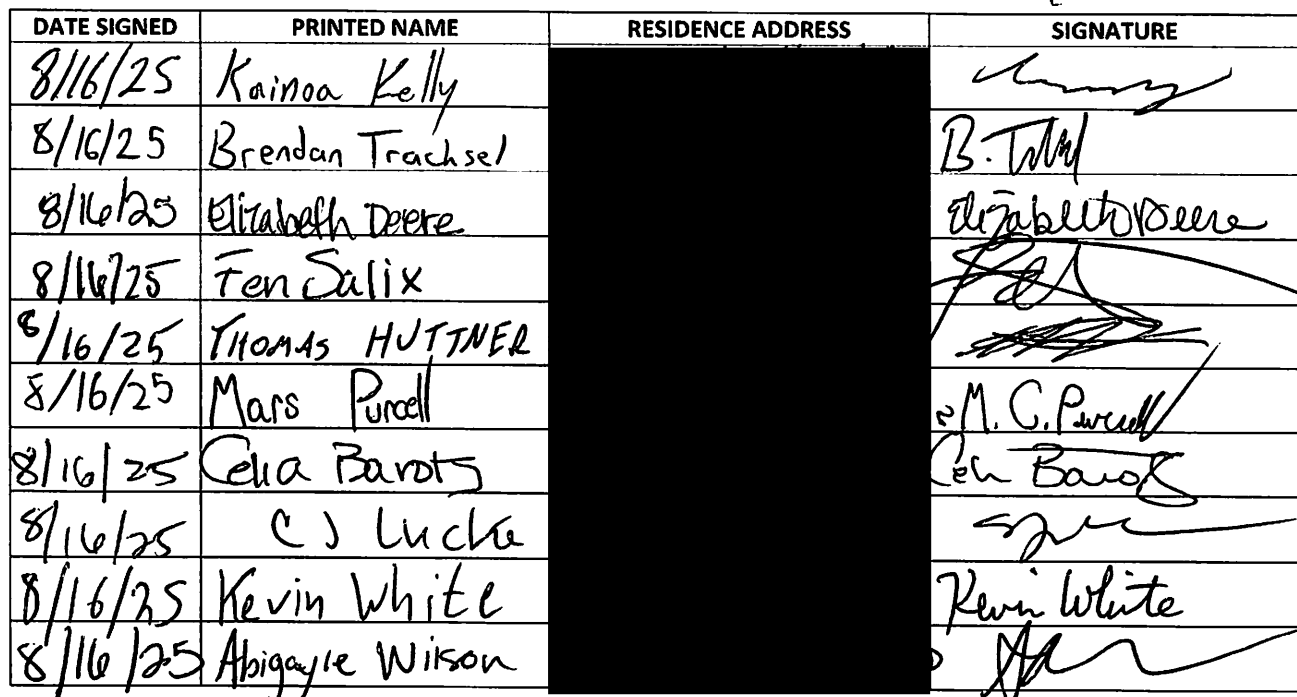 DATE SIGNED PRINTED NAME RESIDENCE ADDRESS SIGNATURE
8/16/25 Kainoa Kelly
8/16/25 Brendan Trachsel B.
8/16/25 Elizabeth Deere Elizabeth Deere
8/16/25 Fen Salix
8/16/25 THOMAS HUTTNER
8/16/25 Mars Purcell M. C. Purcell
8/16/25 Celia Barots
8/16/25 CJ Lucke
8/16/25 Kevin White Kevin White
8/16/25 Abigayle Wilson